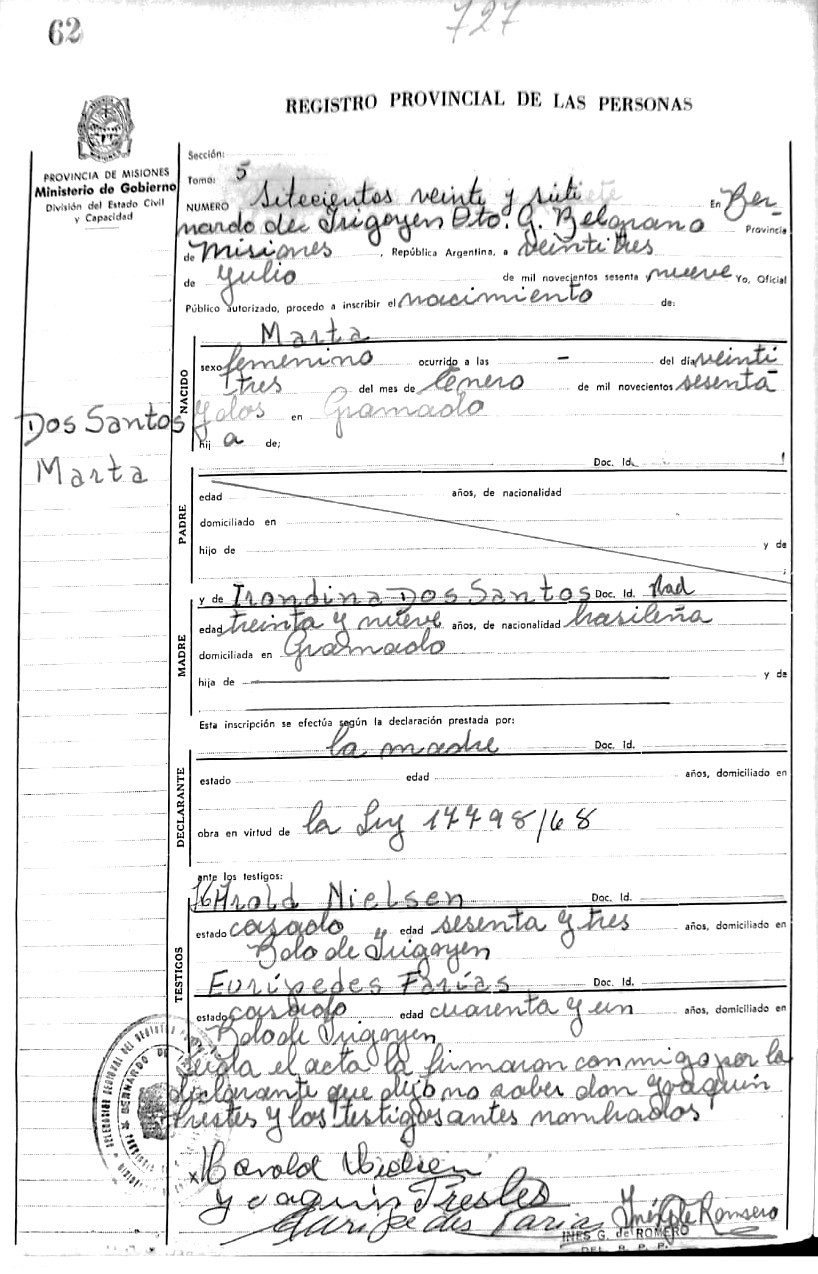 62
727
REGISTRO PROVINCIAL DE LAS PERSONAS
PROVINCIA DE MISIONES
Ministerio de Gobierno
División del Estado Civil
y Capacidad
Dos Santos
Marta
Sección:
Tomo: 5
NUMERO Setecientos veinte y siete En Ber-
nardo de Irigoyen Dto. G. Belgrano Provincia
de Misiones , República Argentina, a veintitres
de Julio de mil novecientos sesenta y nueve Yo, Oficial
Público autorizado, procedo a inscribir el nacimiento de:
NACIDO
Marta
sexo femenino ocurrido a las – del día veinti
tres del mes de Enero de mil novecientos sesenta
y dos en Gramado
hij a de;
Doc. Id.
PADRE
edad años, de nacionalidad
domiciliado en
hijo de y de
MADRE
y de Irondina Dos Santos Doc. Id.
edad treinta y nueve años, de nacionalidad brasileña
domiciliada en Gramado
hija de y de
Esta inscripción se efectúa según la declaración prestada por:
la madre Doc. Id.
DECLARANTE
estado edad años, domiciliado en
obra en virtud de la Ley 17798/68
ante los testigos:
TESTIGOS
Harold Nielsen Doc. Id.
estado casado edad sesenta y tres años, domiciliado en
Bdo de Irigoyen
Eurípedes Farías Doc. Id.
estado casado edad cuarenta y un años, domiciliado en
Bdo de Irigoyen
Leida el acta la firmaron conmigo por la
declarante que dijo no saber don Joaquin
Prestes y los testigos antes nombrados
Harold Nielsen
Joaquin Prestes
Euripedes Farias
INES G. de ROMERO
DEL. R. P. P.